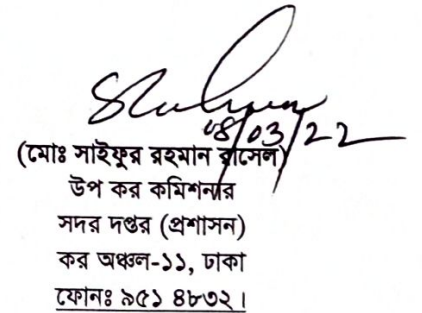 ০৪/03/22
(মোঃ সাইফুর রহমান রাসেল)
উপ কর কমিশনার
সদর দপ্তর (প্রশাসন)
কর অঞ্চল-১১, ঢাকা
ফোনঃ ৯৫১ ৪৮৩২।